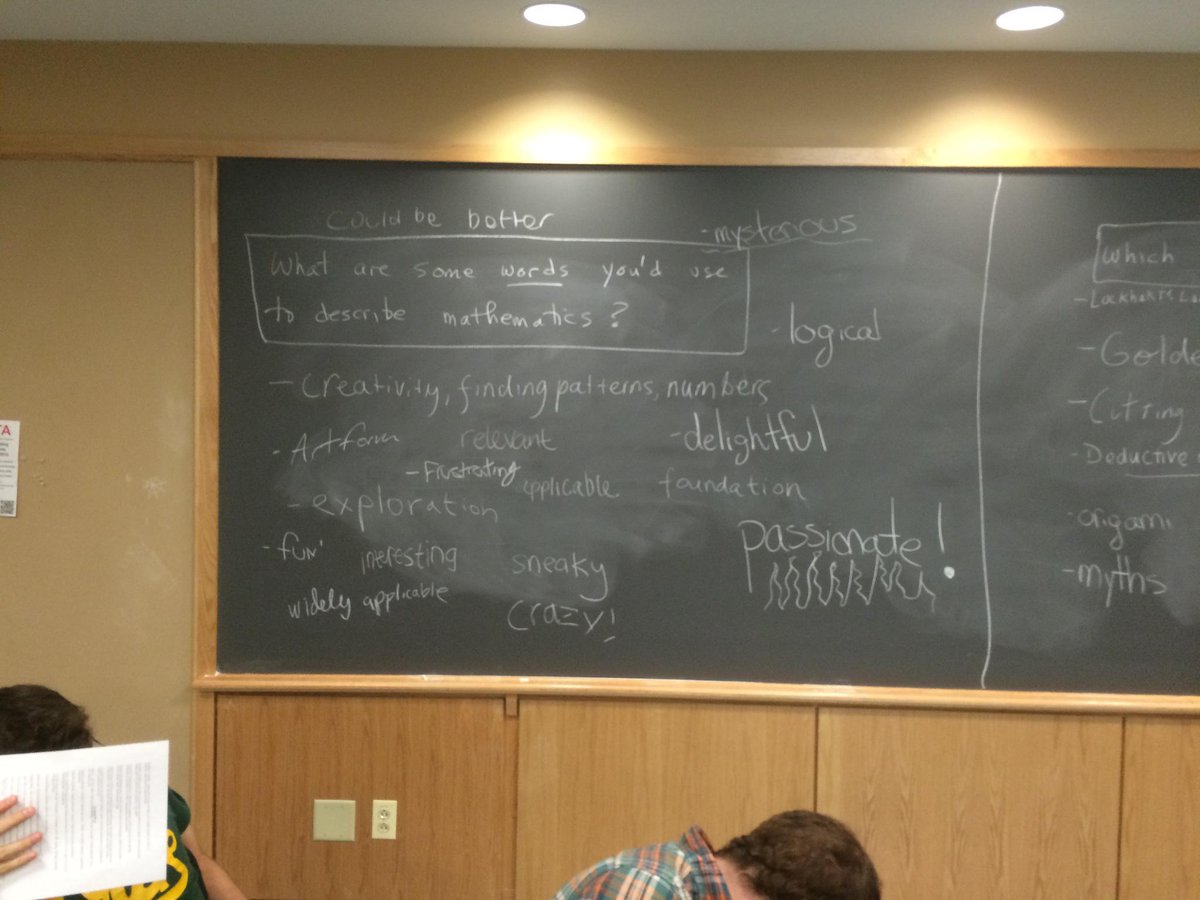 Could be better
- mysterious
What are some words you'd use
to describe mathematics?
- logical
- Creativity, finding patterns, numbers
- Art form
relevant
- delightful
- Frustrating
applicable
foundation
- exploration
passionate!
- fun
interesting
sneaky
widely applicable
crazy!
Which
- Lockhart's
- Golde
- Citing
- Deductive
- origami
- myths
TA